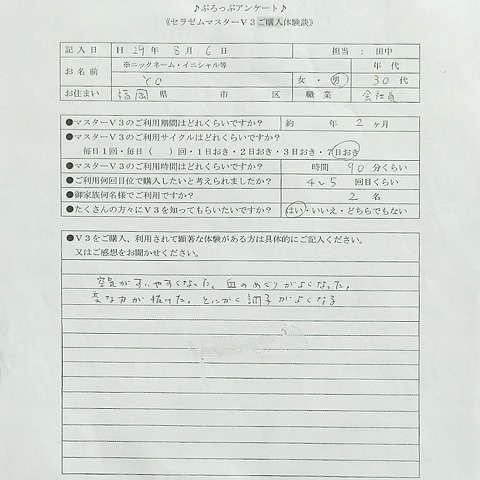 ♪ぷろっぷアンケート♪
《セラゼムマスターV3ご購入体験談》
記入日 H 29年 8月 6日 担当：田中
お名前 ※ニックネーム・イニシャル等 年代
女・男 30代
お住まい 福岡 県 市 区 職業 会社員
●マスターV3のご利用期間はどれくらいですか？ 約 年 2ヶ月
●マスターV3のご利用サイクルはどれくらいですか？
毎日1回・毎日（ ）回・1日おき・2日おき・3日おき・7日おき
●マスターV3のご利用時間はどれくらいですか？ 時間 90分くらい
●ご利用何回目位で購入したいと考えられましたか？ 4~5 回目くらい
●御家族何名様でご利用ですか？ 2名
●たくさんの方々にV3を知ってもらいたいですか？ はい・いいえ・どちらでもない
●V3をご購入、利用されて顕著な体験がある方は具体的にご記入ください。
又はご感想をお聞かせください。
空気がすいやすくなった。血のめぐりがよくなった。
変な力が抜けた。とにかく調子がよくなる